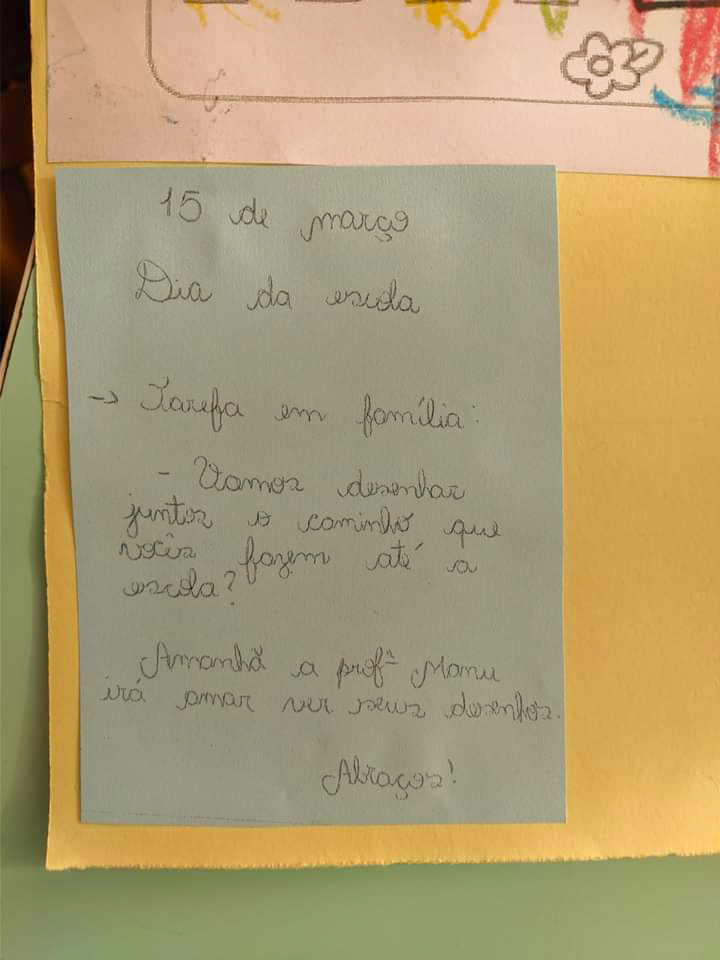 15 de março
Dia da escola
→ Tarefa em família:
- Vamos desenhar
juntos o caminho que
vocês fazem até a
escola?
Amanhã a profª Manu
irá amar ver seus desenhos.
Abraços!